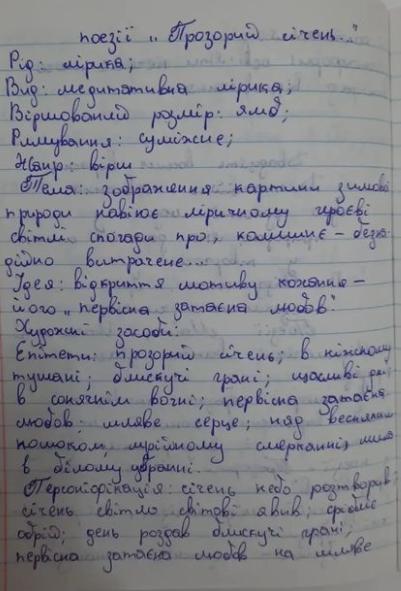 поезії „Прозорий січень..."
Рід: лірика;
Вид: медитативна лірика;
Віршований розмір: ямб;
Римування: суміжне;
Жанр: вірш
Тема: зображення картини зимової
природи навіює ліричному героєві
світлі спогади про, колишнє - безна-
дійно витрачене...
Ідея: відкриття мотиву кохання -
його „первісна затаєна любов".
Художні засоби:
Епітети: прозорий січень; в ніжному
тумані; блискучі грані; щасливі дні
в сонячнім вогні; первісна затаєна
любов; мляве серце; над весняним
потоком, мрійному смерканні,
в білому убранні.
Персоніфікація: січень небо розтворив
січень світло світові явив; срібліє
обрій; день роздав блискучі грані;
первісна затаєна любов на мляве